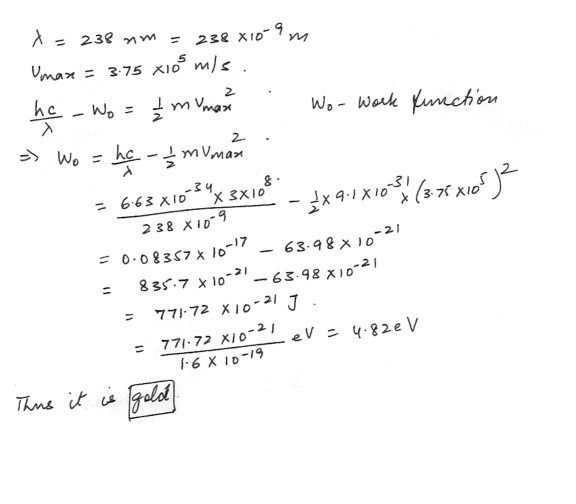 λ = 238 nm = 238 ×10⁻⁹ m
Vmax = 3.75 ×10⁵ m/s .
hc/λ - W₀ = 1/2 m Vmax² . W₀ - Work function
=> W₀ = hc/λ - 1/2 m Vmax² .
= 6.63 ×10⁻³⁴ × 3×10⁸ / 238 ×10⁻⁹ - 1/2 × 9.1 ×10⁻³¹ × (3.75 ×10⁵)²
= 0.08357 × 10⁻¹⁷ - 63.98 × 10⁻²¹
= 835.7 × 10⁻²¹ - 63.98 ×10⁻²¹
= 771.72 ×10⁻²¹ J .
= 771.72 ×10⁻²¹ / 1.6 × 10⁻¹⁹ eV = 4.82eV
Thus it is gold